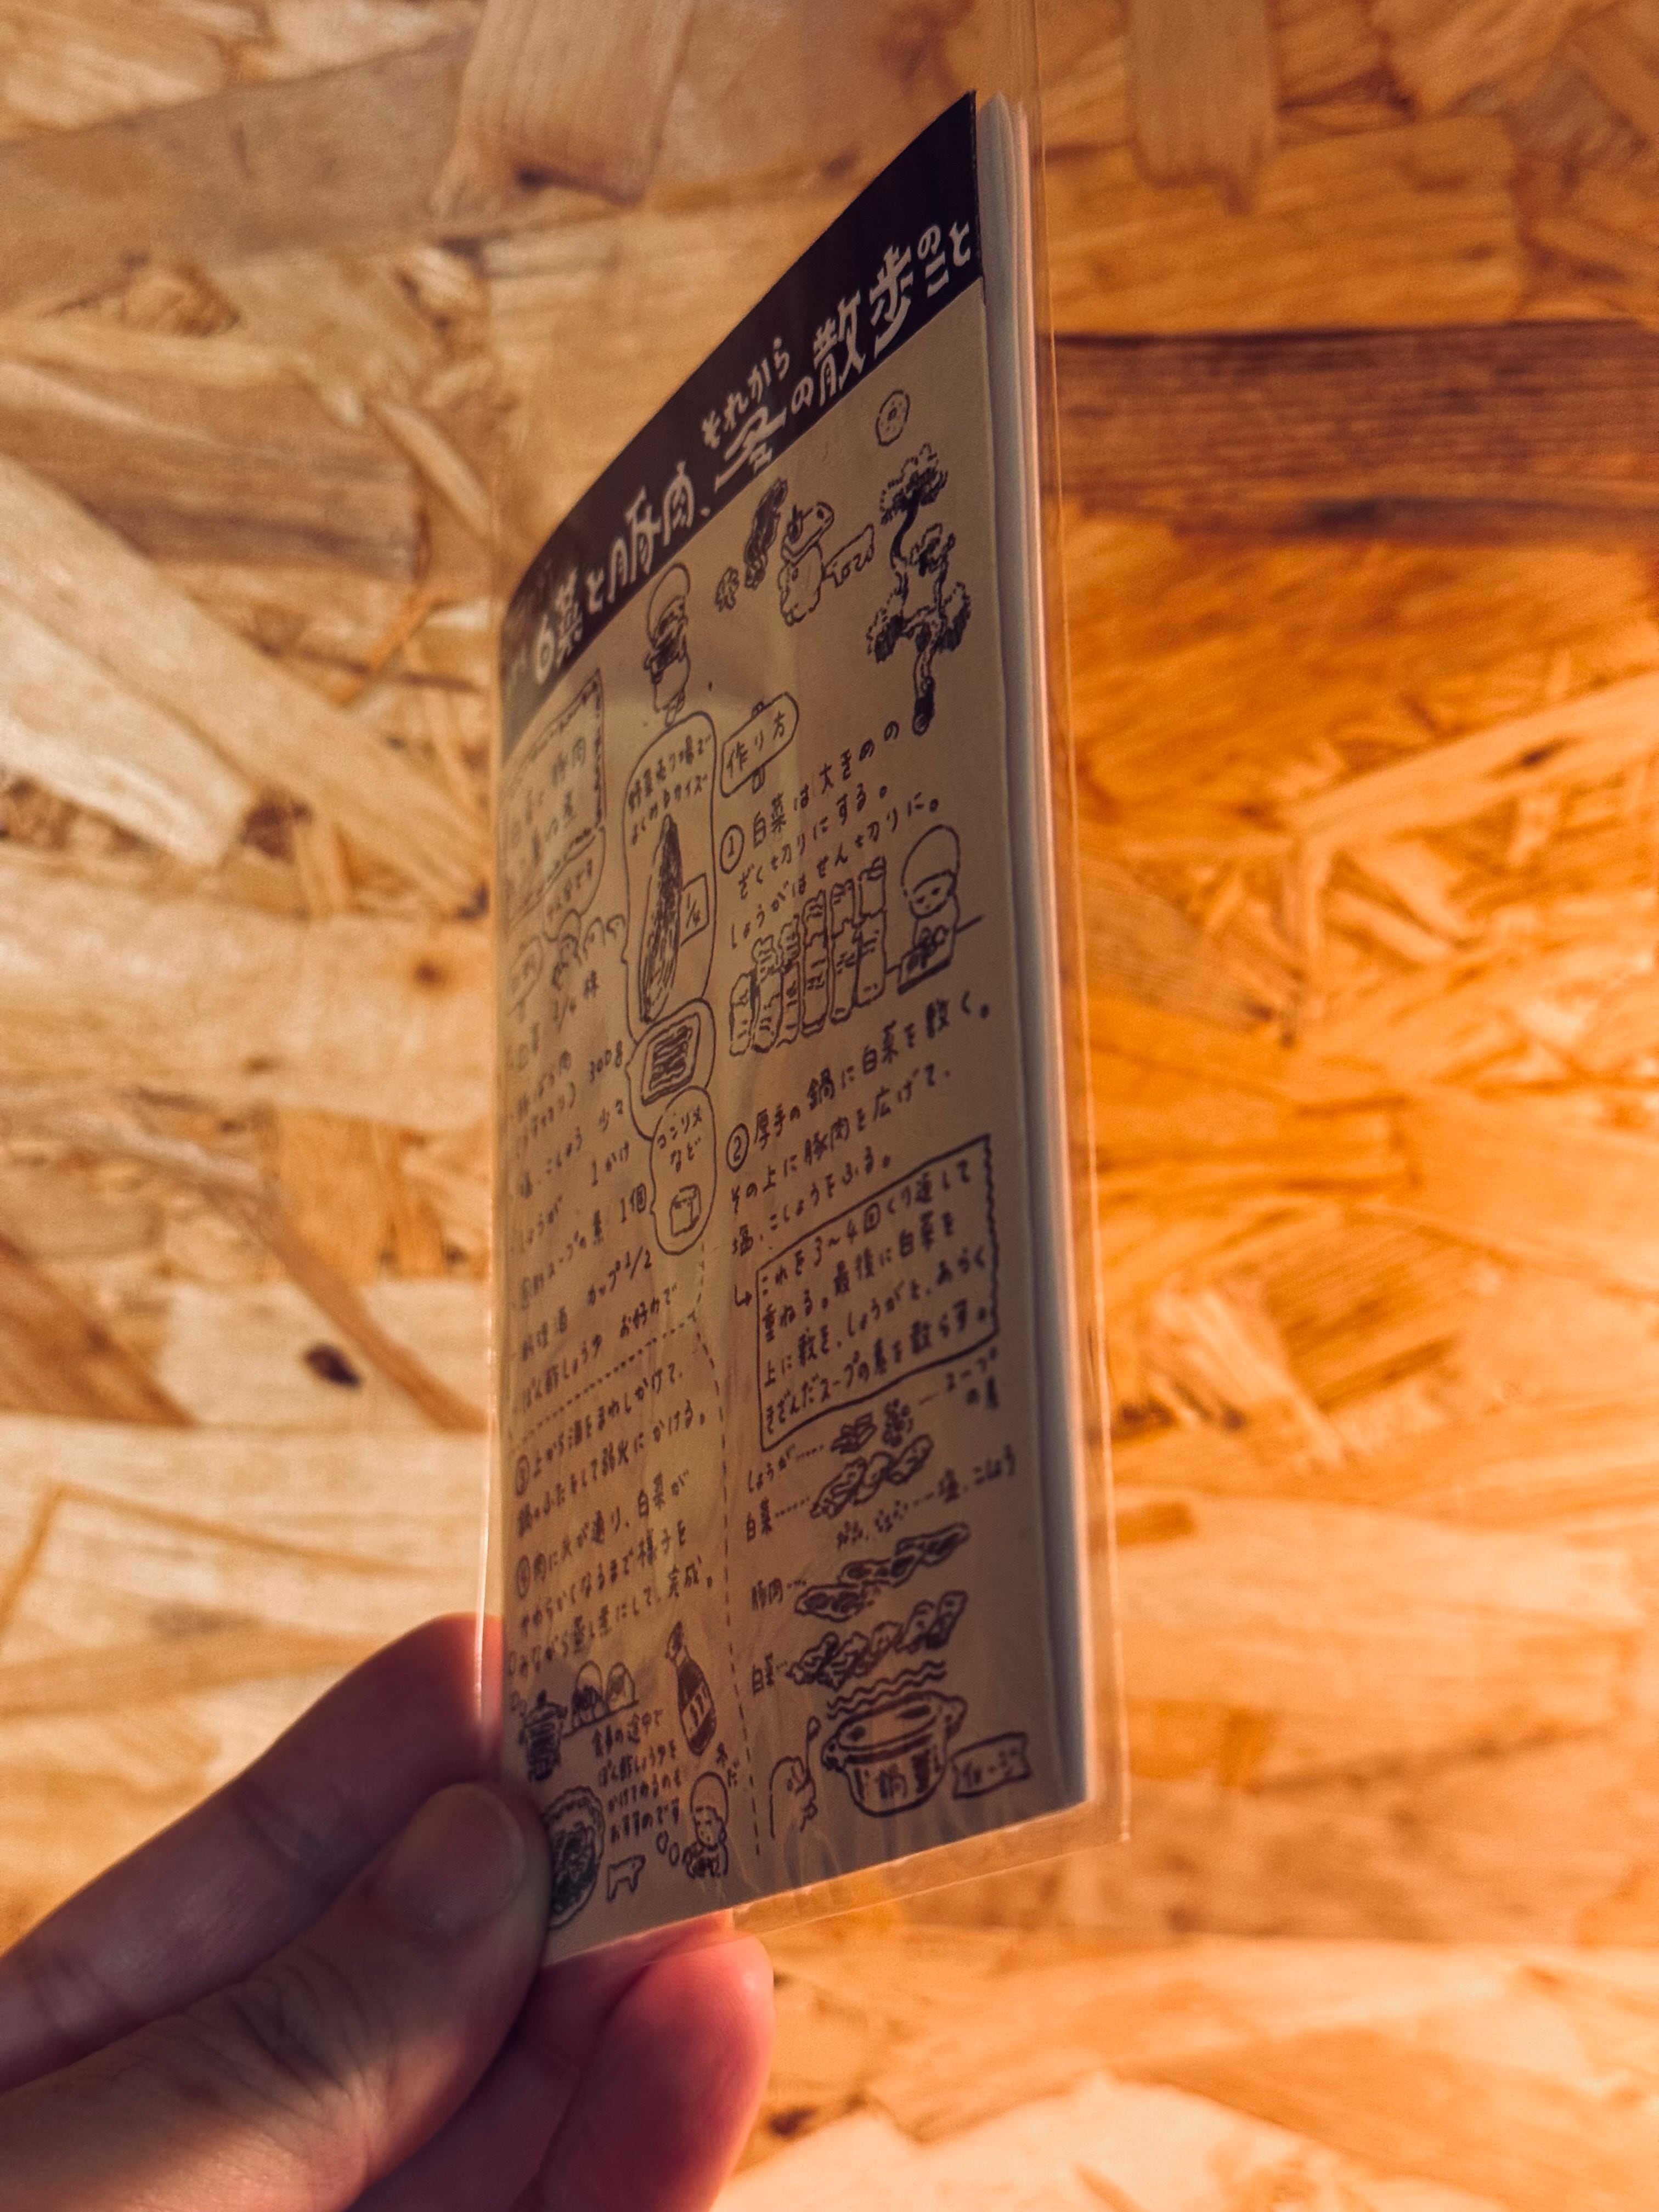 白菜と豚肉、それから冬の散歩のこと
野菜売り場で
よくあるサイズ
1/4
白菜 1/4株
豚ばら肉 300g
塩、こしょう 少々
しょうが 1かけ
固形スープの素 1個
コンソメ
など
料理酒 カップ1/2
ぽん酢しょうゆ お好みで
③上から酒をまわしかけて、
鍋のふたをして弱火にかける。
④肉に火が通り、白菜が
やわらかくなるまで様子を
みながら蒸し煮にして、完成。
食事の途中で
ぽん酢しょうゆを
かけてみるのも
おすすめです
作り方
①白菜は大きめの
ざく切りにする。
しょうがはせん切りに。
②厚手の鍋に白菜を敷く。
その上に豚肉を広げて、
塩、こしょうをふる。
これを3〜4回くり返して
重ねる。最後に白菜を
上に敷き、しょうがと、あらく
きざんだスープの素を散らす。
スープ
の素
しょうが
白菜
塩、こしょう
豚肉
白菜
鍋